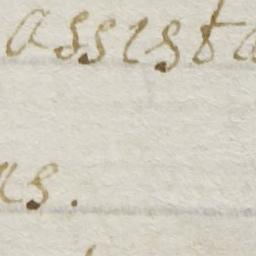 assista
as.